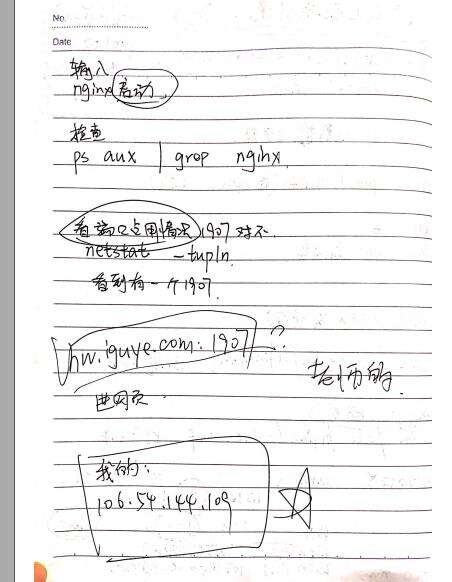 No.
Date
输入
nginx 启动.
检查
ps aux | grep nginx
看端口占用情况 1907 对不.
netstat -tupln.
看到有一个1907.
hw.iguye.com:1907 ?
老师的.
出网页.
我的:
106.54.144.109